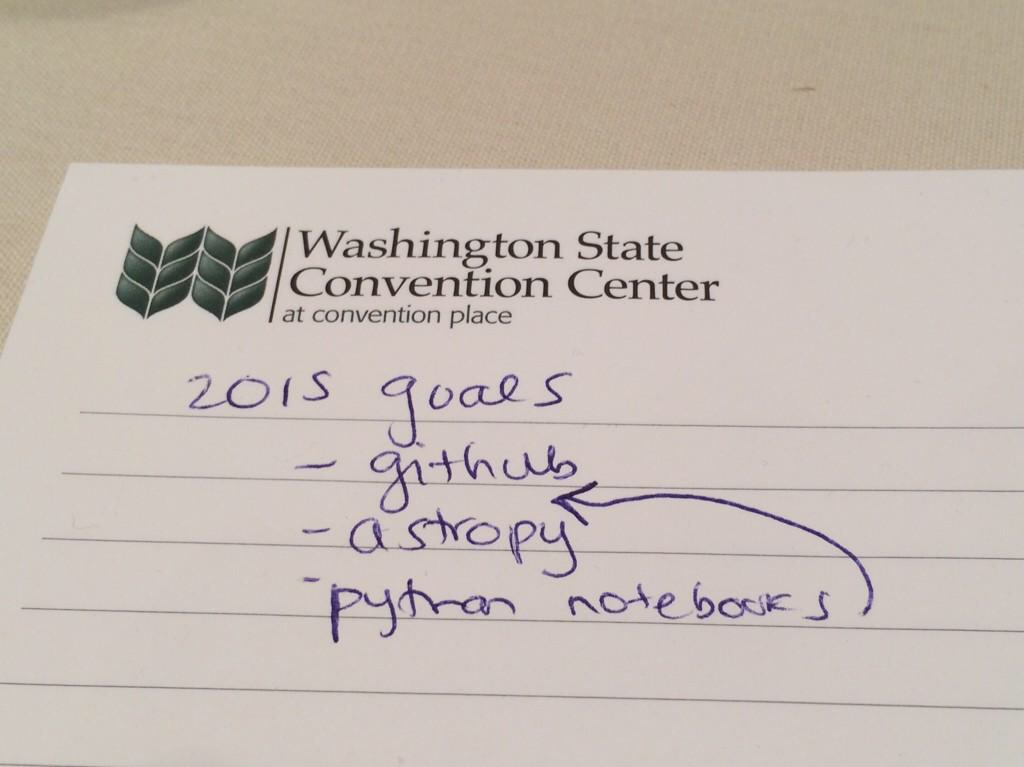 Washington State
Convention Center
at convention place
2015 goals
- github
- astropy
- python notebooks